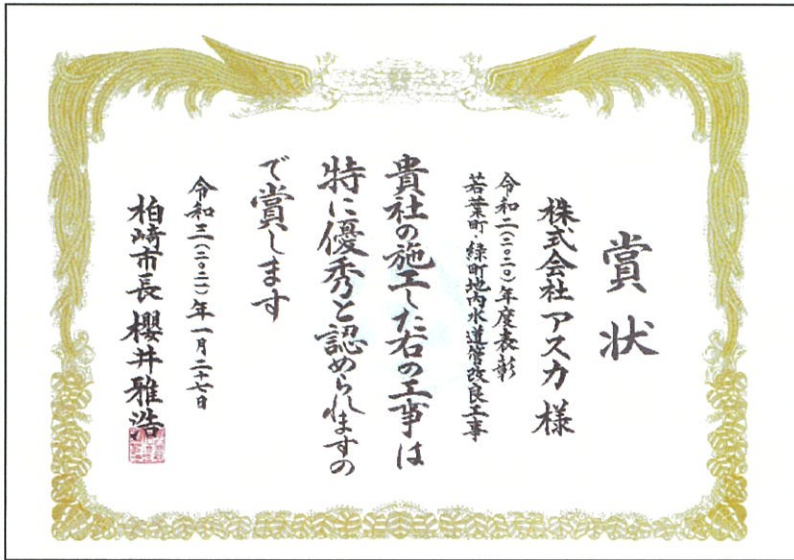 賞状
株式会社アスカ様
令和二(二〇二〇)年度表彰
若葉町・緑町地内水道管改良工事
貴社の施工した右の工事は
特に優秀と認められますの
で賞します
令和三(二〇二一)年一月二十七日
柏崎市長 櫻井雅浩